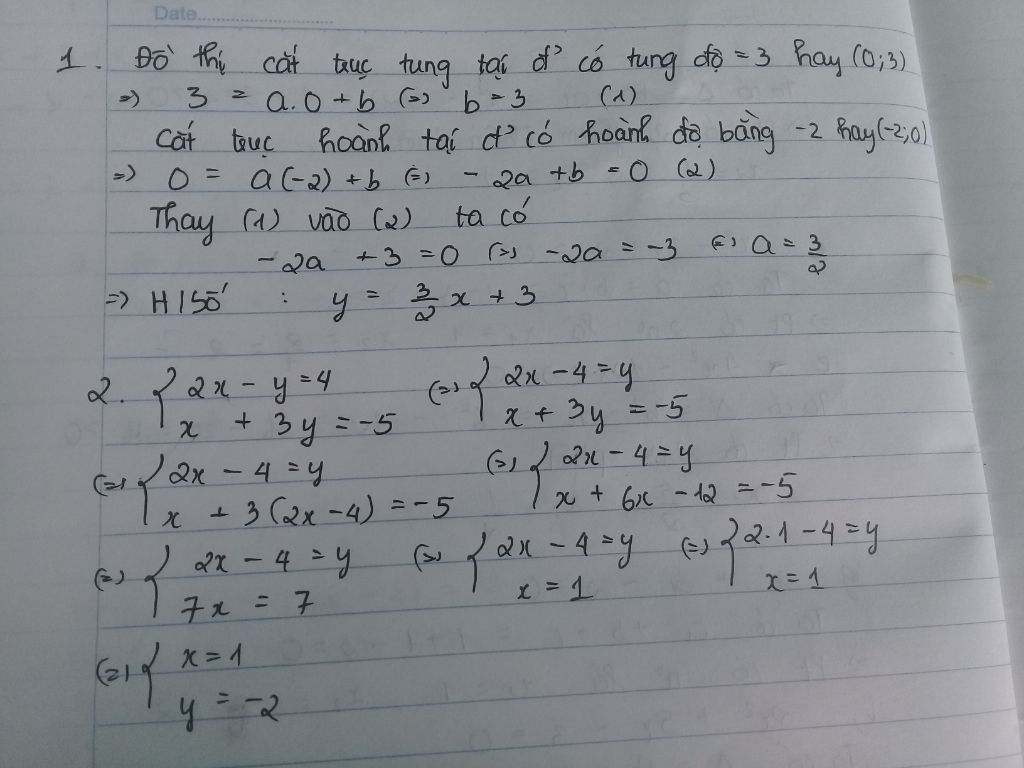 Date....................
1. Đồ thị cắt trục tung tại đ' có tung độ = 3 hay (0;3)
=> 3 = a.0 + b (=> b = 3 (1)
Cắt trục hoành tại đ' có hoành độ bằng -2 hay (-2;0)
=> 0 = a(-2) + b (=) - 2a + b = 0 (2)
Thay (1) vào (2) ta có
-2a + 3 = 0 (=) -2a = -3 (=) a = 3/2
=> H/Số : y = 3/2 x + 3
2. { 2x - y = 4 (=) { 2x - 4 = y
x + 3y = -5 x + 3y = -5
(=) { 2x - 4 = y (=) { 2x - 4 = y
x + 3(2x - 4) = -5 x + 6x - 12 = -5
(=) { 2x - 4 = y (=) { 2x - 4 = y (=) { 2.1 - 4 = y
7x = 7 x = 1 x = 1
(=) { x = 1
y = -2